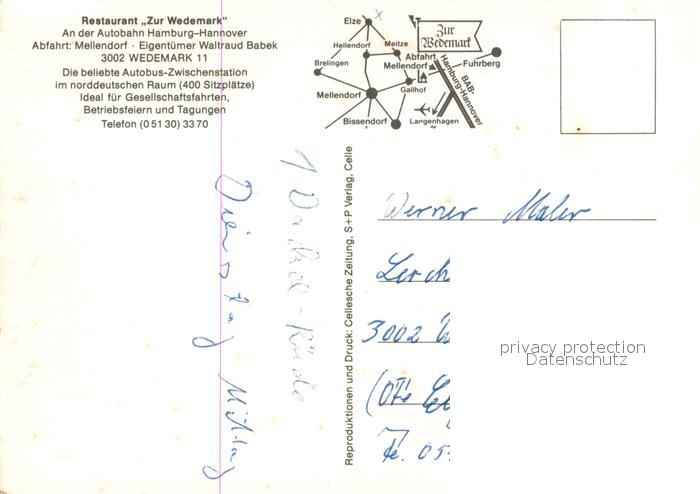 Restaurant „Zur Wedemark"
An der Autobahn Hamburg–Hannover
Abfahrt: Mellendorf · Eigentümer Waltraud Babek
3002 WEDEMARK 11
Die beliebte Autobus-Zwischenstation
im norddeutschen Raum (400 Sitzplätze)
Ideal für Gesellschaftsfahrten,
Betriebsfeiern und Tagungen
Telefon (0 51 30) 33 70
Elze
Hellendorf
Meitze
Brelingen
Zur
Wedemark
Abfahrt
Mellendorf
Fuhrberg
Mellendorf
Gailhof
BAB-
Hamburg-Hannover
Bissendorf
Langenhagen
1 Dackel-Rüde
Dienstag Mittag
Reproduktionen und Druck: Cellesche Zeitung, S+P Verlag, Celle
Werner Maler
Lerch
3002
(OT
Te. 05
privacy protection
Datenschutz